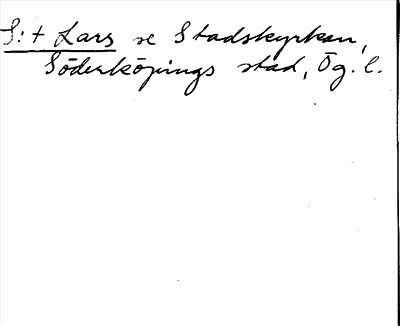 S:t Lars se Stadskyrkan,
Söderköpings stad, Ög. l.